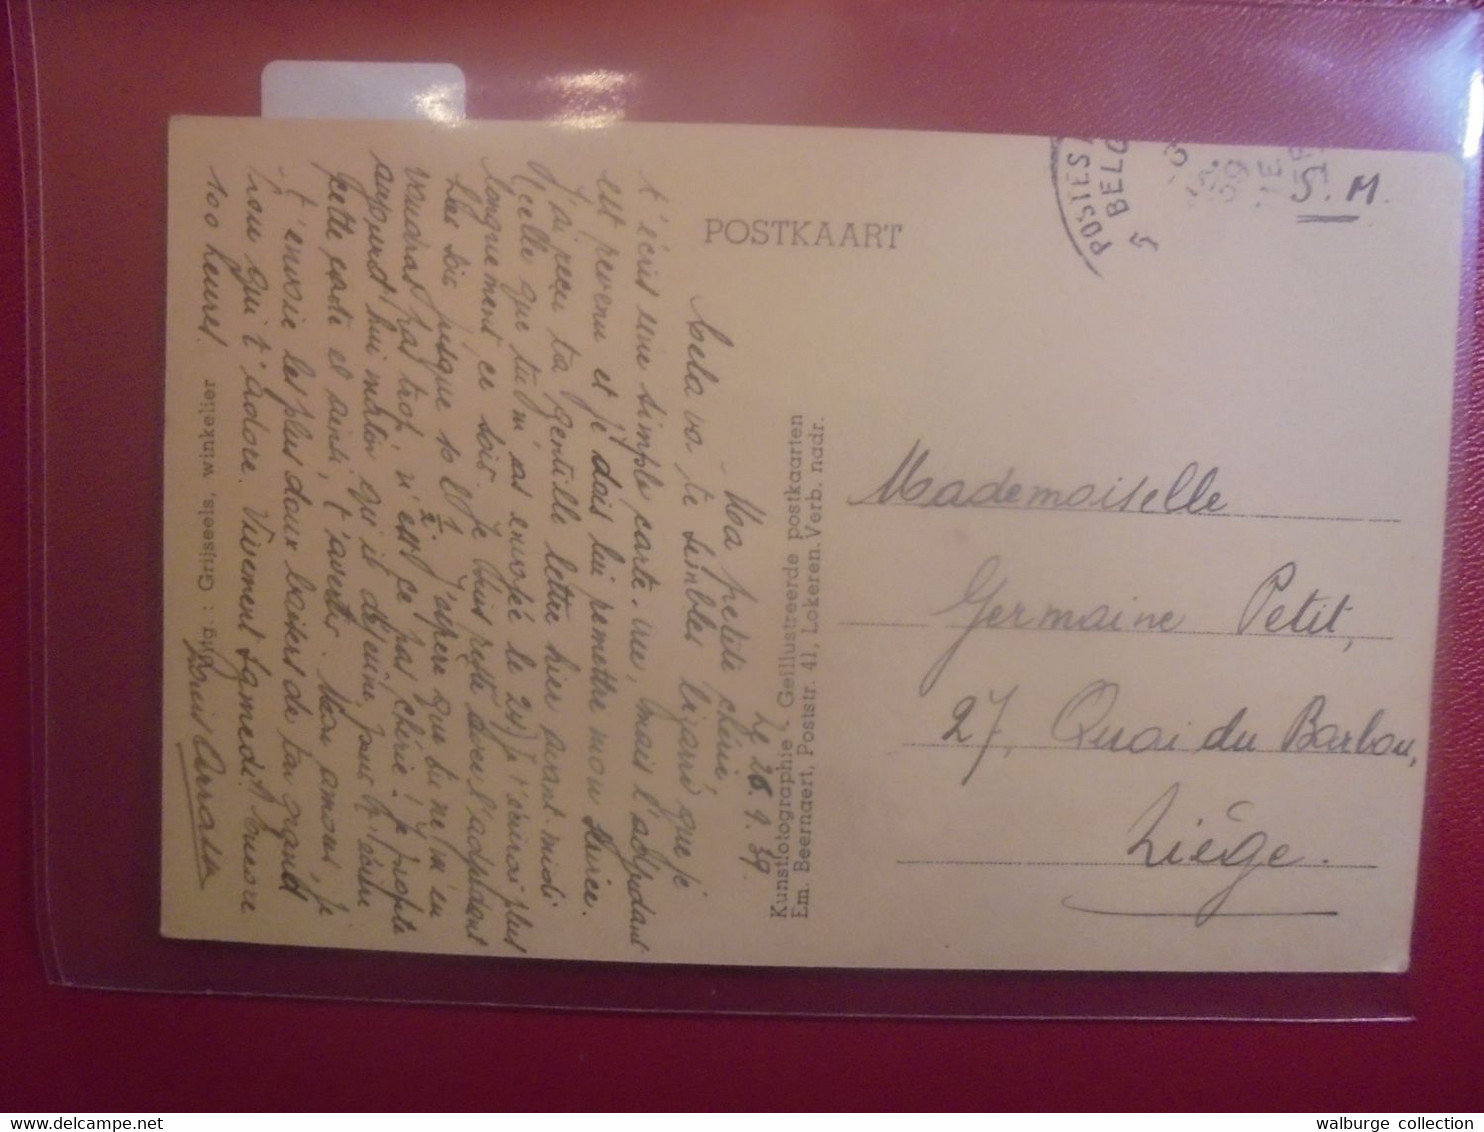 POSTKAART
POSTES
BELG
5
S. M.
Le 26. 9. 39.
Ma petite chérie,
Cela va te sembler bizarre que je
t'écris une simple carte-vue, mais l'adjudant
est revenu et je dois lui remettre mon service.
J'ai reçu ta gentille lettre hier avant-midi
(celle que tu m'as envoyé le 24) je t'écrirai plus
longuement ce soir. Je suis resté avec l'adjudant
hier soir jusque 10 h 1/2. J'espère que tu ne m'en
voudras pas trop, n'est ce pas chérie! Je profite
aujourd'hui matin qu'il déjeune, pour t'écrire
cette carte et ainsi, t'avertir. Mon amour, je
t'envoie les plus doux baisers de ton grand
Lou qui t'adore. Vivement Samedi! Encore
100 heures.
Louis
Kunstfotographie - Geillustreerde postkaarten
Em. Beernaert, Poststr. 41, Lokeren. Verb. nadr.
Uitg. : Grijseels, winkelier
Mademoiselle
Germaine Petit,
27, Quai du Barbou,
Liège.
walburge collection